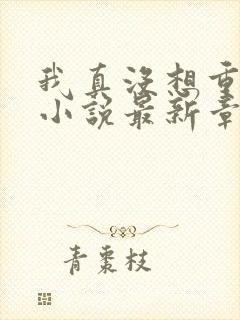 我真没想重
小说最新章
青枣枝